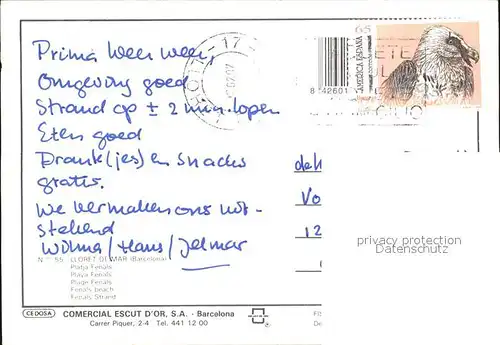 Prima weer weer,
Omgeving goed
Strand op ± 2 min. lopen
Eten goed
Drank(jes) en snacks
gratis.
We vermaken ons uit-
stekend
Wilma/Hans/Jelmar
65
AMERICA ESPAÑA
8 42601
17
deh
Vo
12
privacy protection
Datenschutz
N.º 55 LLORET DE MAR (Barcelona)
Platja Fenals
Playa Fenals
Plage Fenals
Fenals beach
Fenals Strand
CEDOSA
COMERCIAL ESCUT D'OR, S.A. - Barcelona
Carrer Piquer, 2-4 Tel. 441 12 00